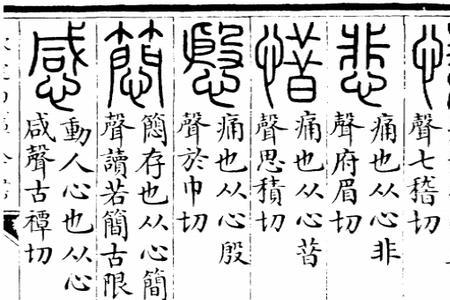 聲七稽切
悲
痛也从心非
聲府眉切
惜
痛也从心昔
聲思積切
慇
痛也从心殷
聲於巾切
存也从心簡
聲讀若簡古限
感
動人心也从心
咸聲古禫切